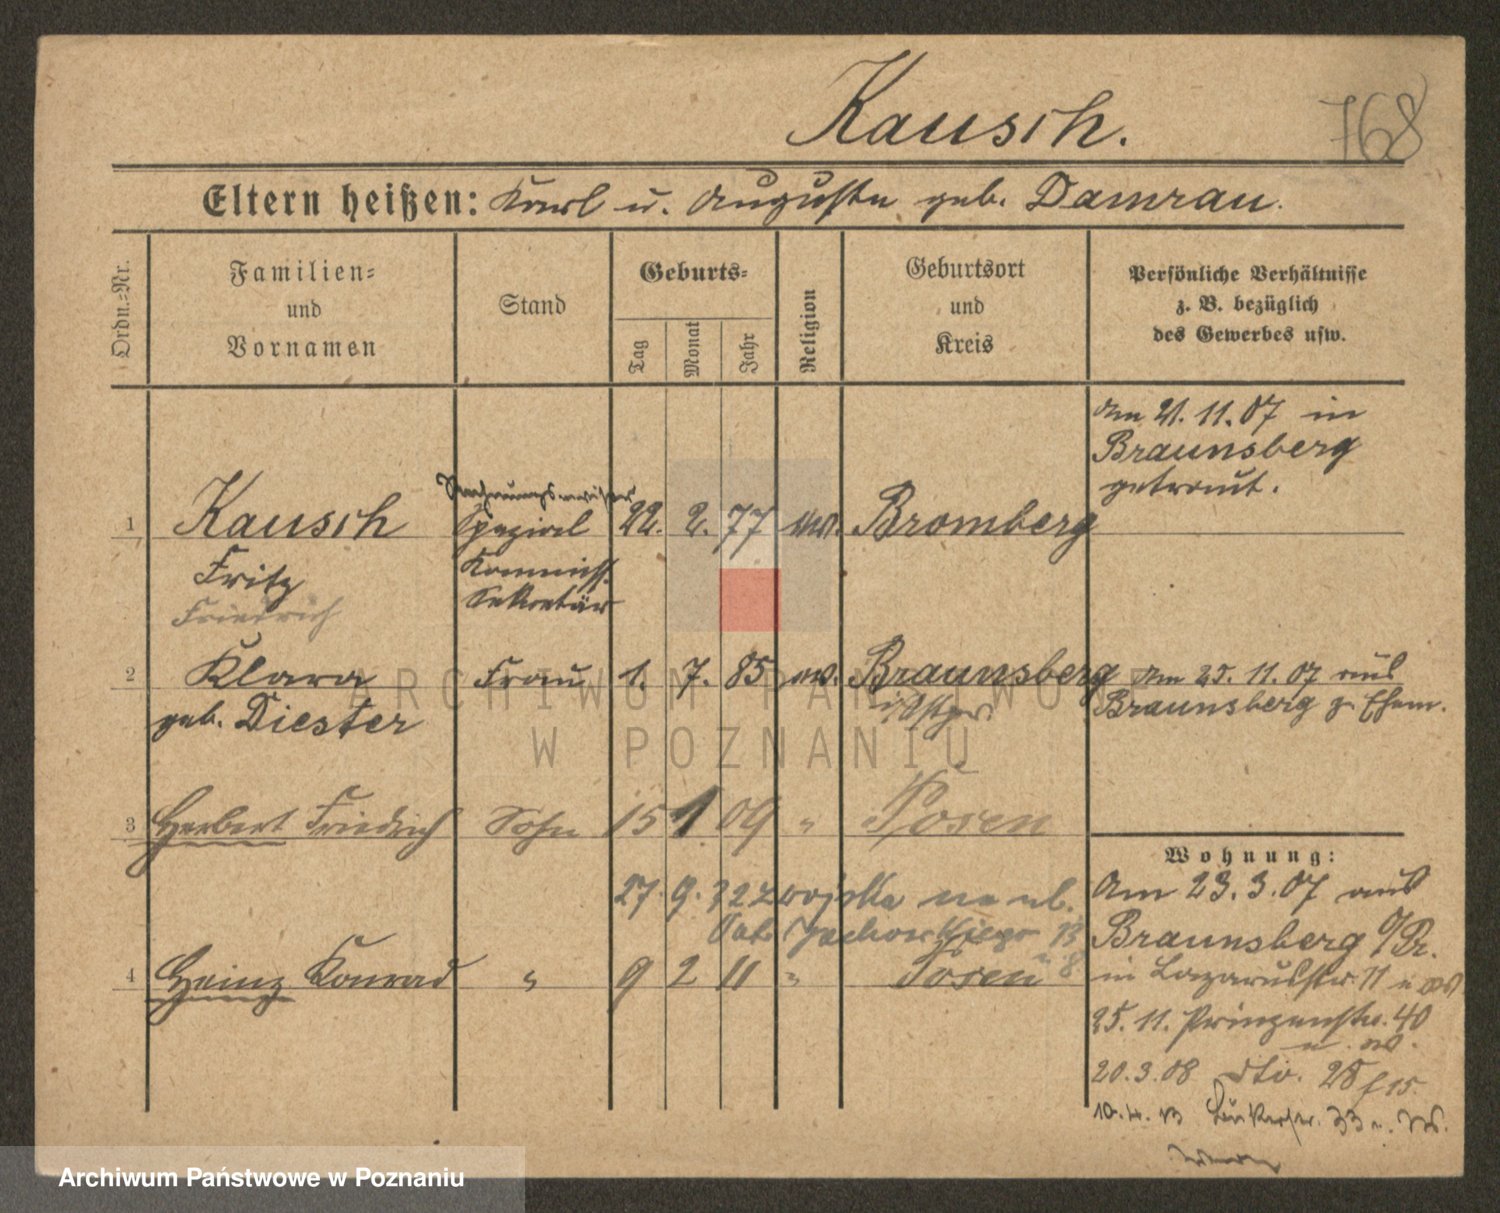 Kausch.
768
Eltern heißen: Karl u. Auguste geb. Damrau.
Ordn.-Nr.
Familien-
und
Vornamen
Stand
Geburts-
Tag
Monat
Jahr
Religion
Geburtsort
und
Kreis
Persönliche Verhältnisse
z. B. bezüglich
des Gewerbes usw.
am 21. 11. 07 in
Braunsberg
getraut.
1 Kausch
Spezial 22. 2. 77 Bromberg
Fritz
Kommiss.
Sekretär
Friedrich
2 Klara Frau 1. 7. 85 Braunsberg
am 25. 11. 07 aus
Braunsberg z. Ehem.
geb. Diester
i/Ostpr.
3 Herbert Friedrich Sohn 15 1 09 " Posen
27. 9. 22 z wojska na ul.
13
4 Heinz Konrad " 9 2 11 " Posen
Wohnung:
Am 23. 3. 07 aus
Braunsberg O/Pr.
in Lazarusstr. 11
25. 11. Prinzenstr. 40
20. 3. 08 dto. 28
10. 4. 13 33
ARCHIWUM PAŃSTWOWE
W POZNANIU
Archiwum Państwowe w Poznaniu